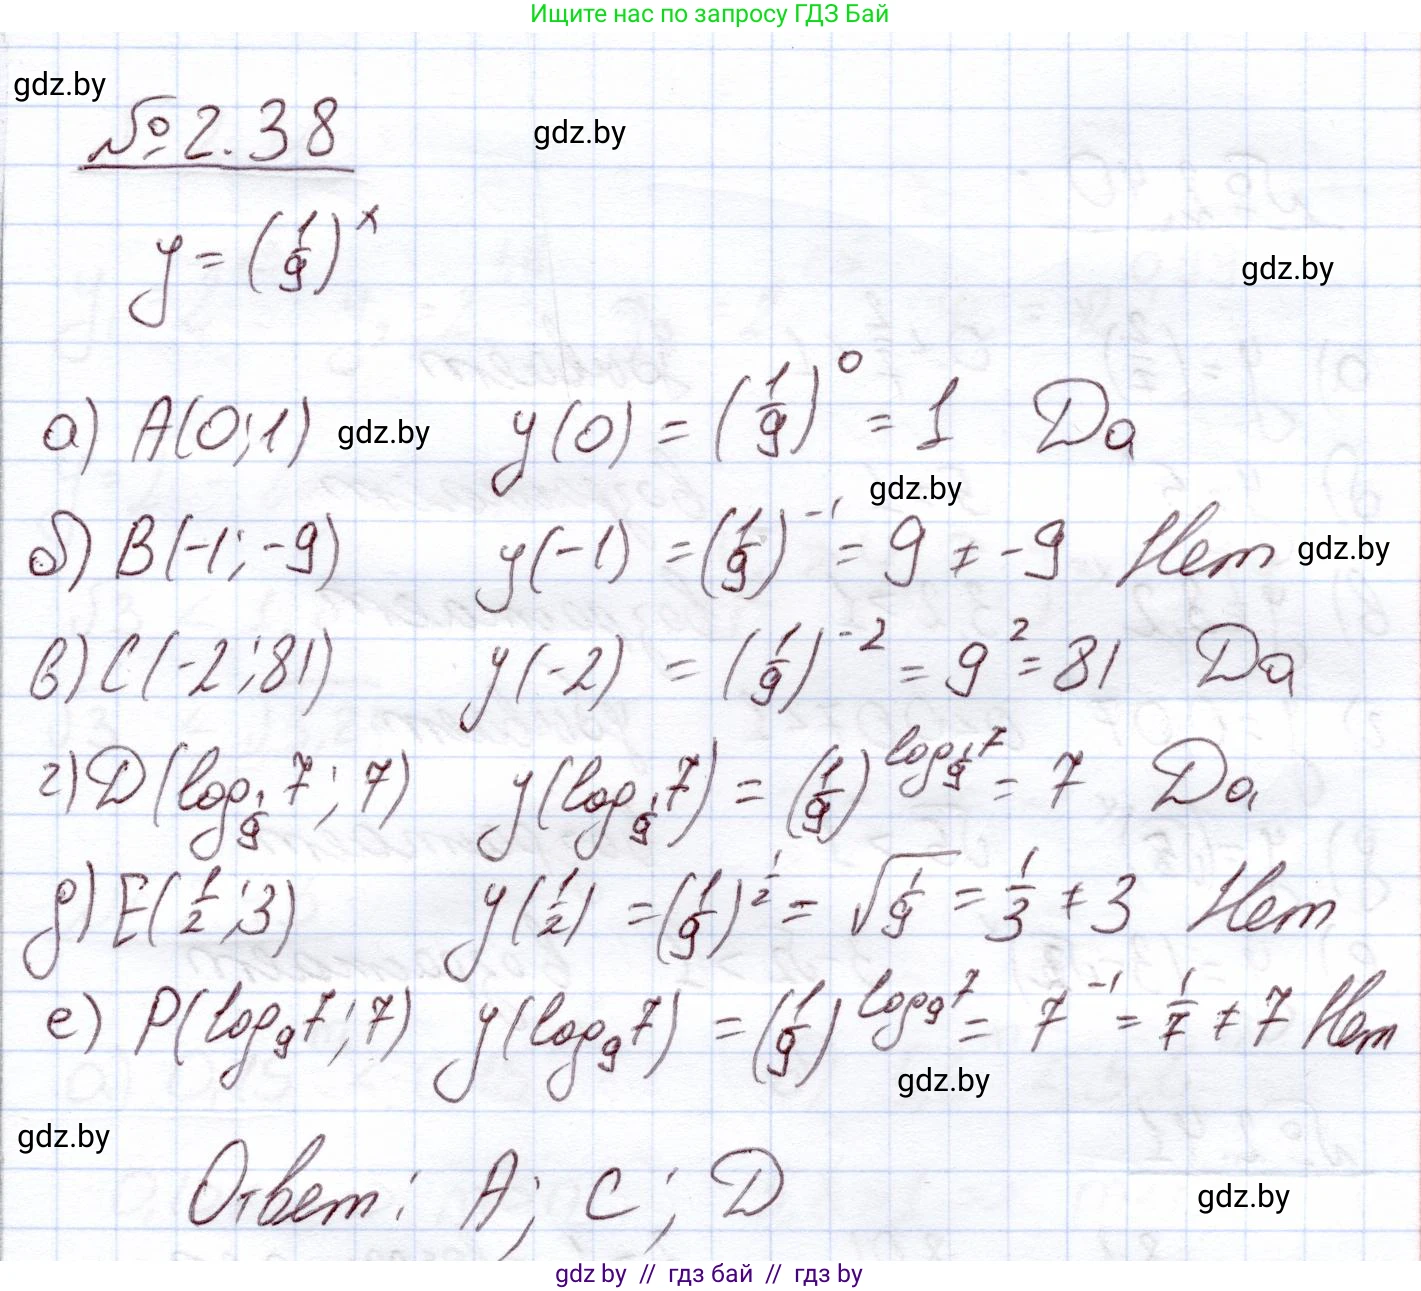 Ищите нас по запросу ГДЗ Бай
gdz.by
№2.38
gdz.by
y = (1/9)^x
gdz.by
а) A(0;1) gdz.by y(0) = (1/9)^0 = 1 Да
gdz.by
б) B(-1;-9) y(-1) = (1/9)^-1 = 9 ≠ -9 Нет gdz.by
в) C(-2;81) y(-2) = (1/9)^-2 = 9^2 = 81 Да
г) D(log_1/9 7; 7) y(log_1/9 7) = (1/9)^log_1/9 7 = 7 Да
д) E(1/2;3) y(1/2) = (1/9)^1/2 = √1/9 = 1/3 ≠ 3 Нет
е) P(log_9 7; 7) y(log_9 7) = (1/9)^log_9 7 = 7^-1 = 1/7 ≠ 7 Нет
gdz.by
gdz.by
Ответ: A; C; D
gdz.by
gdz by // гдз бай // гдз by